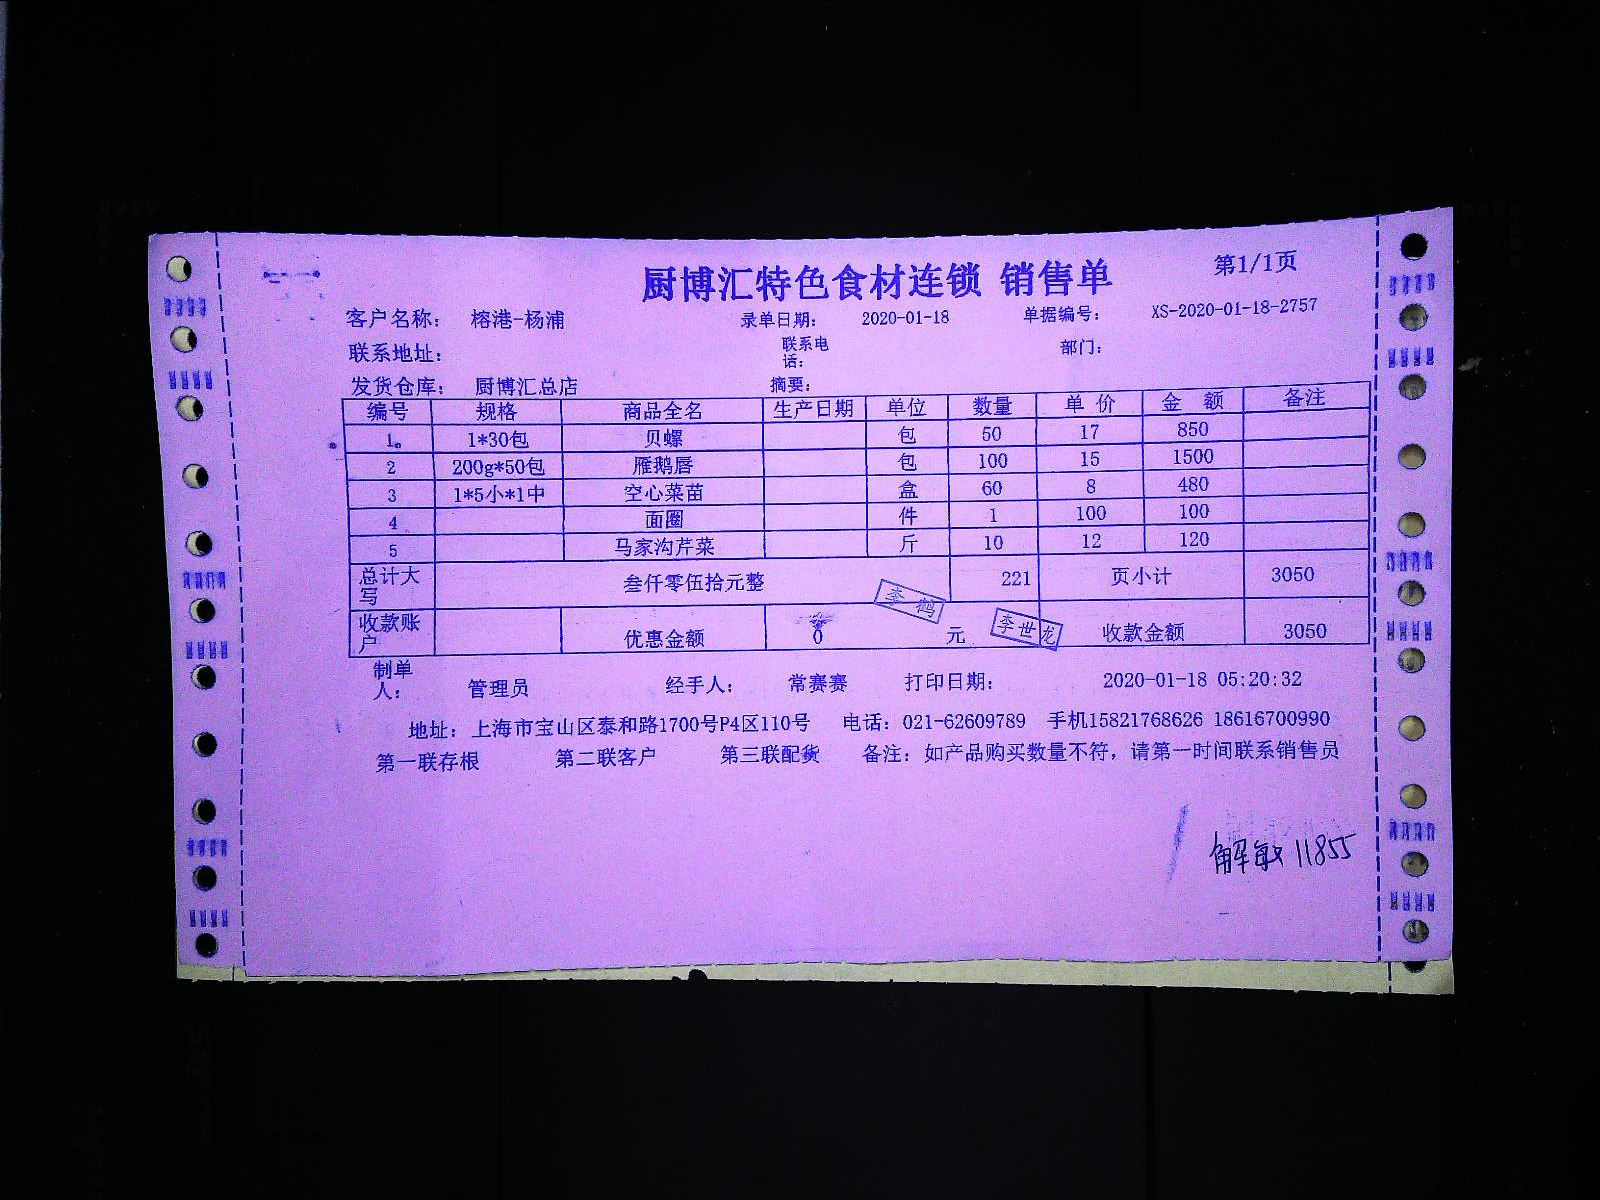 厨博汇特色食材连锁 销售单 第1/1页
客户名称： 榕港-杨浦 录单日期： 2020-01-18 单据编号： XS-2020-01-18-2757
联系地址： 联系电话： 部门：
发货仓库： 厨博汇总店 摘要：
编号 规格 商品全名 生产日期 单位 数量 单 价 金 额 备注
1 1*30包 贝螺 包 50 17 850
2 200g*50包 雁鹅唇 包 100 15 1500
3 1*5小*1中 空心菜苗 盒 60 8 480
4 面圈 件 1 100 100
5 马家沟芹菜 斤 10 12 120
总计大写 叁仟零伍拾元整 221 页小计 3050
李鹤
收款账户 优惠金额 0 元 李世龙 收款金额 3050
制单人： 管理员 经手人： 常赛赛 打印日期： 2020-01-18 05:20:32
地址：上海市宝山区泰和路1700号P4区110号 电话：021-62609789 手机15821768626 18616700990
第一联存根 第二联客户 第三联配货 备注：如产品购买数量不符，请第一时间联系销售员
解敏 11855